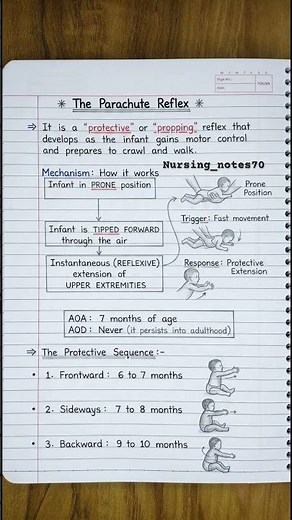 ✳ The Parachute Reflex ✳
⇒ It is a "protective" or "propping" reflex that
develops as the infant gains motor control
and prepares to crawl and walk.
Nursing_notes70
Mechanism: How it works
Infant in PRONE position
Prone
Position
Infant is TIPPED FORWARD
through the air
Trigger: Fast movement
Instantaneous (REFLEXIVE)
extension of
UPPER EXTREMITIES
Response: Protective
Extension
AOA: 7 months of age
AOD: Never (it persists into adulthood)
⇒ The Protective Sequence:-
• 1. Frontward: 6 to 7 months
• 2. Sideways: 7 to 8 months
• 3. Backward: 9 to 10 months